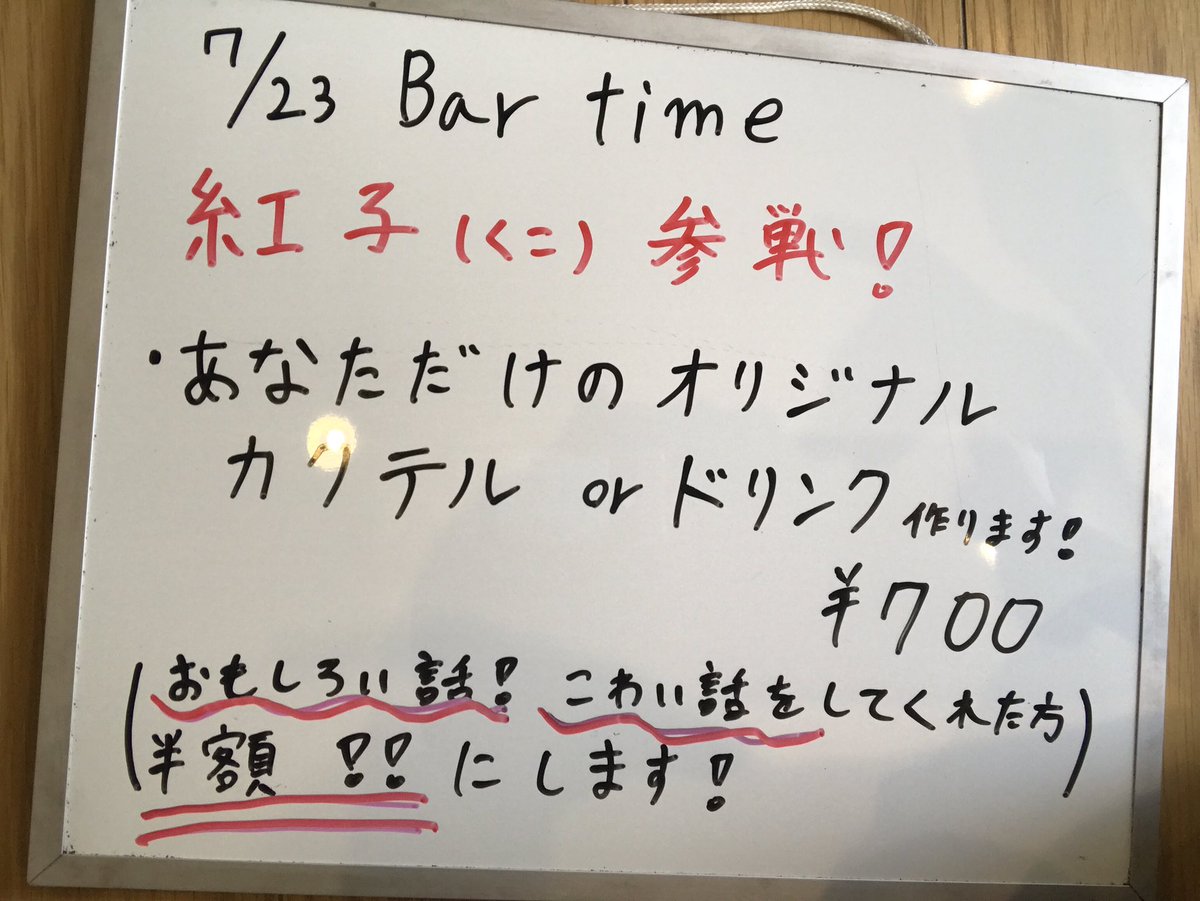 7/23 Bar time
紅子(くこ)参戦!
・あなただけのオリジナル
カクテル or ドリンク作ります!
¥700
(おもしろい話! こわい話をしてくれた方)
半額!!にします!